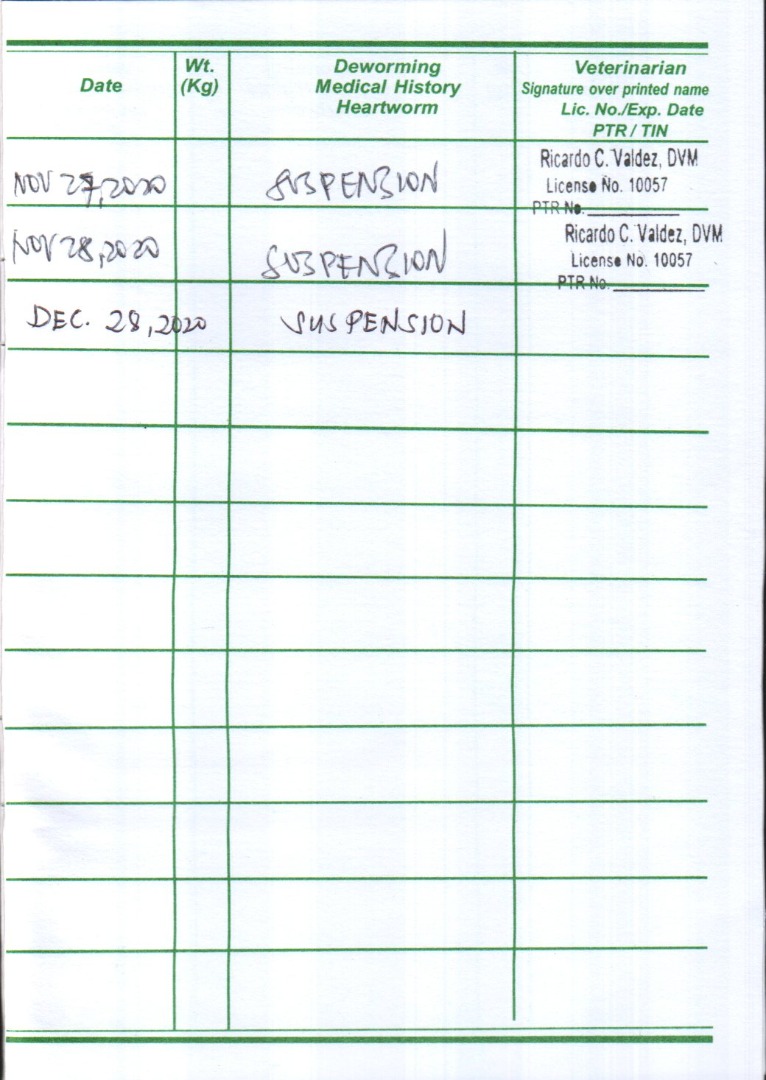 Date
Wt.
(Kg)
Deworming
Medical History
Heartworm
Veterinarian
Signature over printed name
Lic. No./Exp. Date
PTR / TIN
NOV 27, 2020
SUSPENSION
Ricardo C. Valdez, DVM
License No. 10057
PTR No.
NOV 28, 2020
SUSPENSION
Ricardo C. Valdez, DVM
License No. 10057
PTR No.
DEC. 28, 2020
SUSPENSION